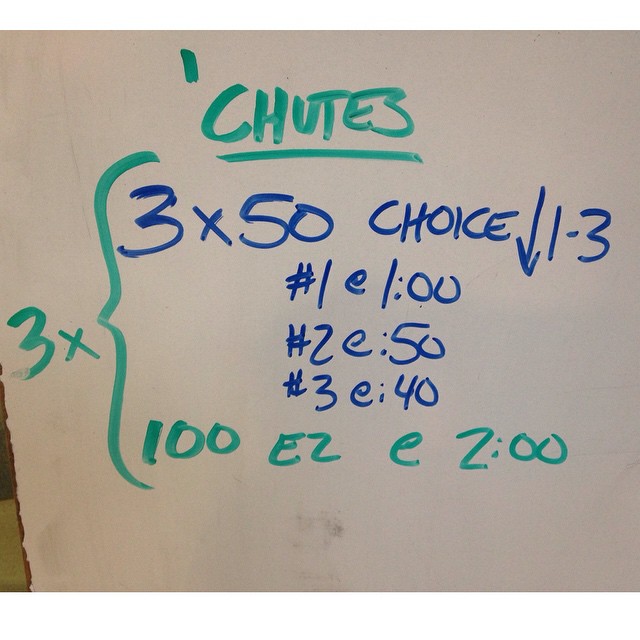 'CHUTES
3x50 CHOICE ↓1-3
#1 @ 1:00
#2 @ :50
#3 @ :40
3x
100 EZ @ 2:00